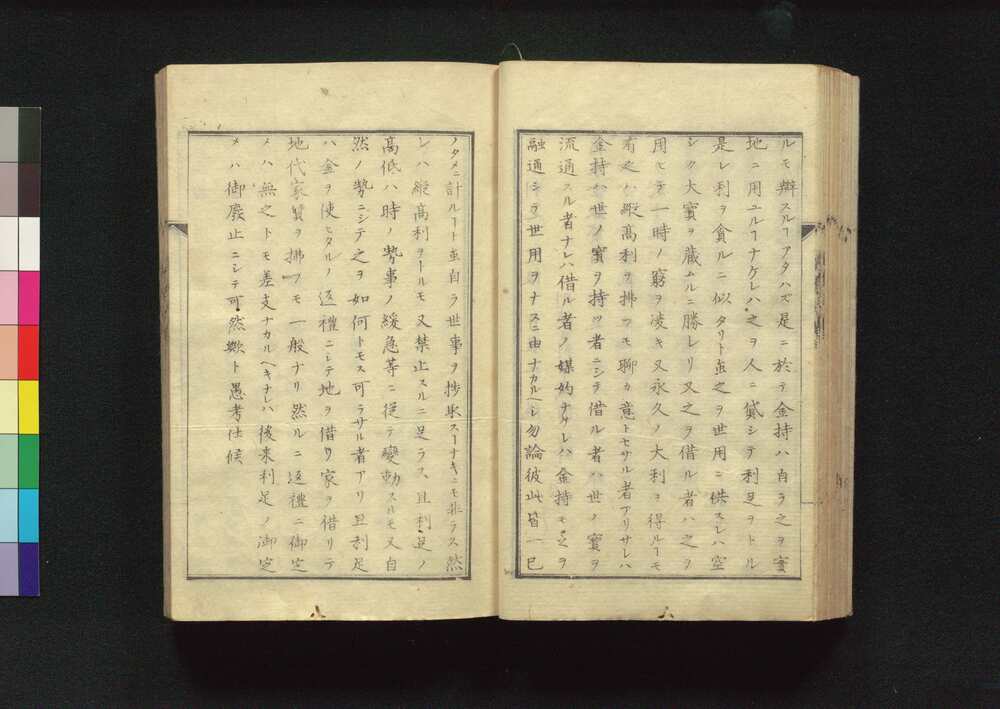 ルモ辨スルヿアタハズ是ニ於テ金持ハ自ラ之ヲ實
地ニ用ユルヿナケレハ之ヲ人ニ貸シテ利足ヲトル
是レ利ヲ貪ルニ似タリト𫝂之ヲ世用ニ供スレハ空
シク大寳ヲ蔵ムルニ勝レリ又之ヲ借ル者ハ之ヲ
用ヒテ一時ノ窮ヲ凌キ又永久ノ大利ヲ得ルヿモ
有之ハ縦髙利ヲ拂フモ聊カ意トセサル者アリサレハ
金持ハ世ノ寳ヲ持ツ者ニシテ借ル者ハ世ノ寳ヲ
流通スル者ナレハ借ル者ノ媒妁ナケレハ金持モ之ヲ
融通シテ世用ヲナスニ由ナカルヘシ勿論彼此皆一己
ノタメニ計ルヿト𫝂自ラ世事ヲ捗取スヿナキニモ非ラス然
レハ縦髙利ヲトルモ又禁止スルニ足ラス且利足ノ
髙低ハ時ノ勢事ノ緩急等ニ従テ變動スルモ又自
然ノ勢ニシテ之ヲ如何トモス可ラサル者アリ且利足
ハ金ヲ使ヒタルノ返禮ニシテ地ヲ借リ家ヲ借リテ
地代家賃ヲ拂フモ一般ナリ然ルニ返禮ニ御定
メハ無之トモ差支ナカルヘキナレハ後来利足ノ御定
メハ御廢止ニシテ可然歟ト愚考仕候